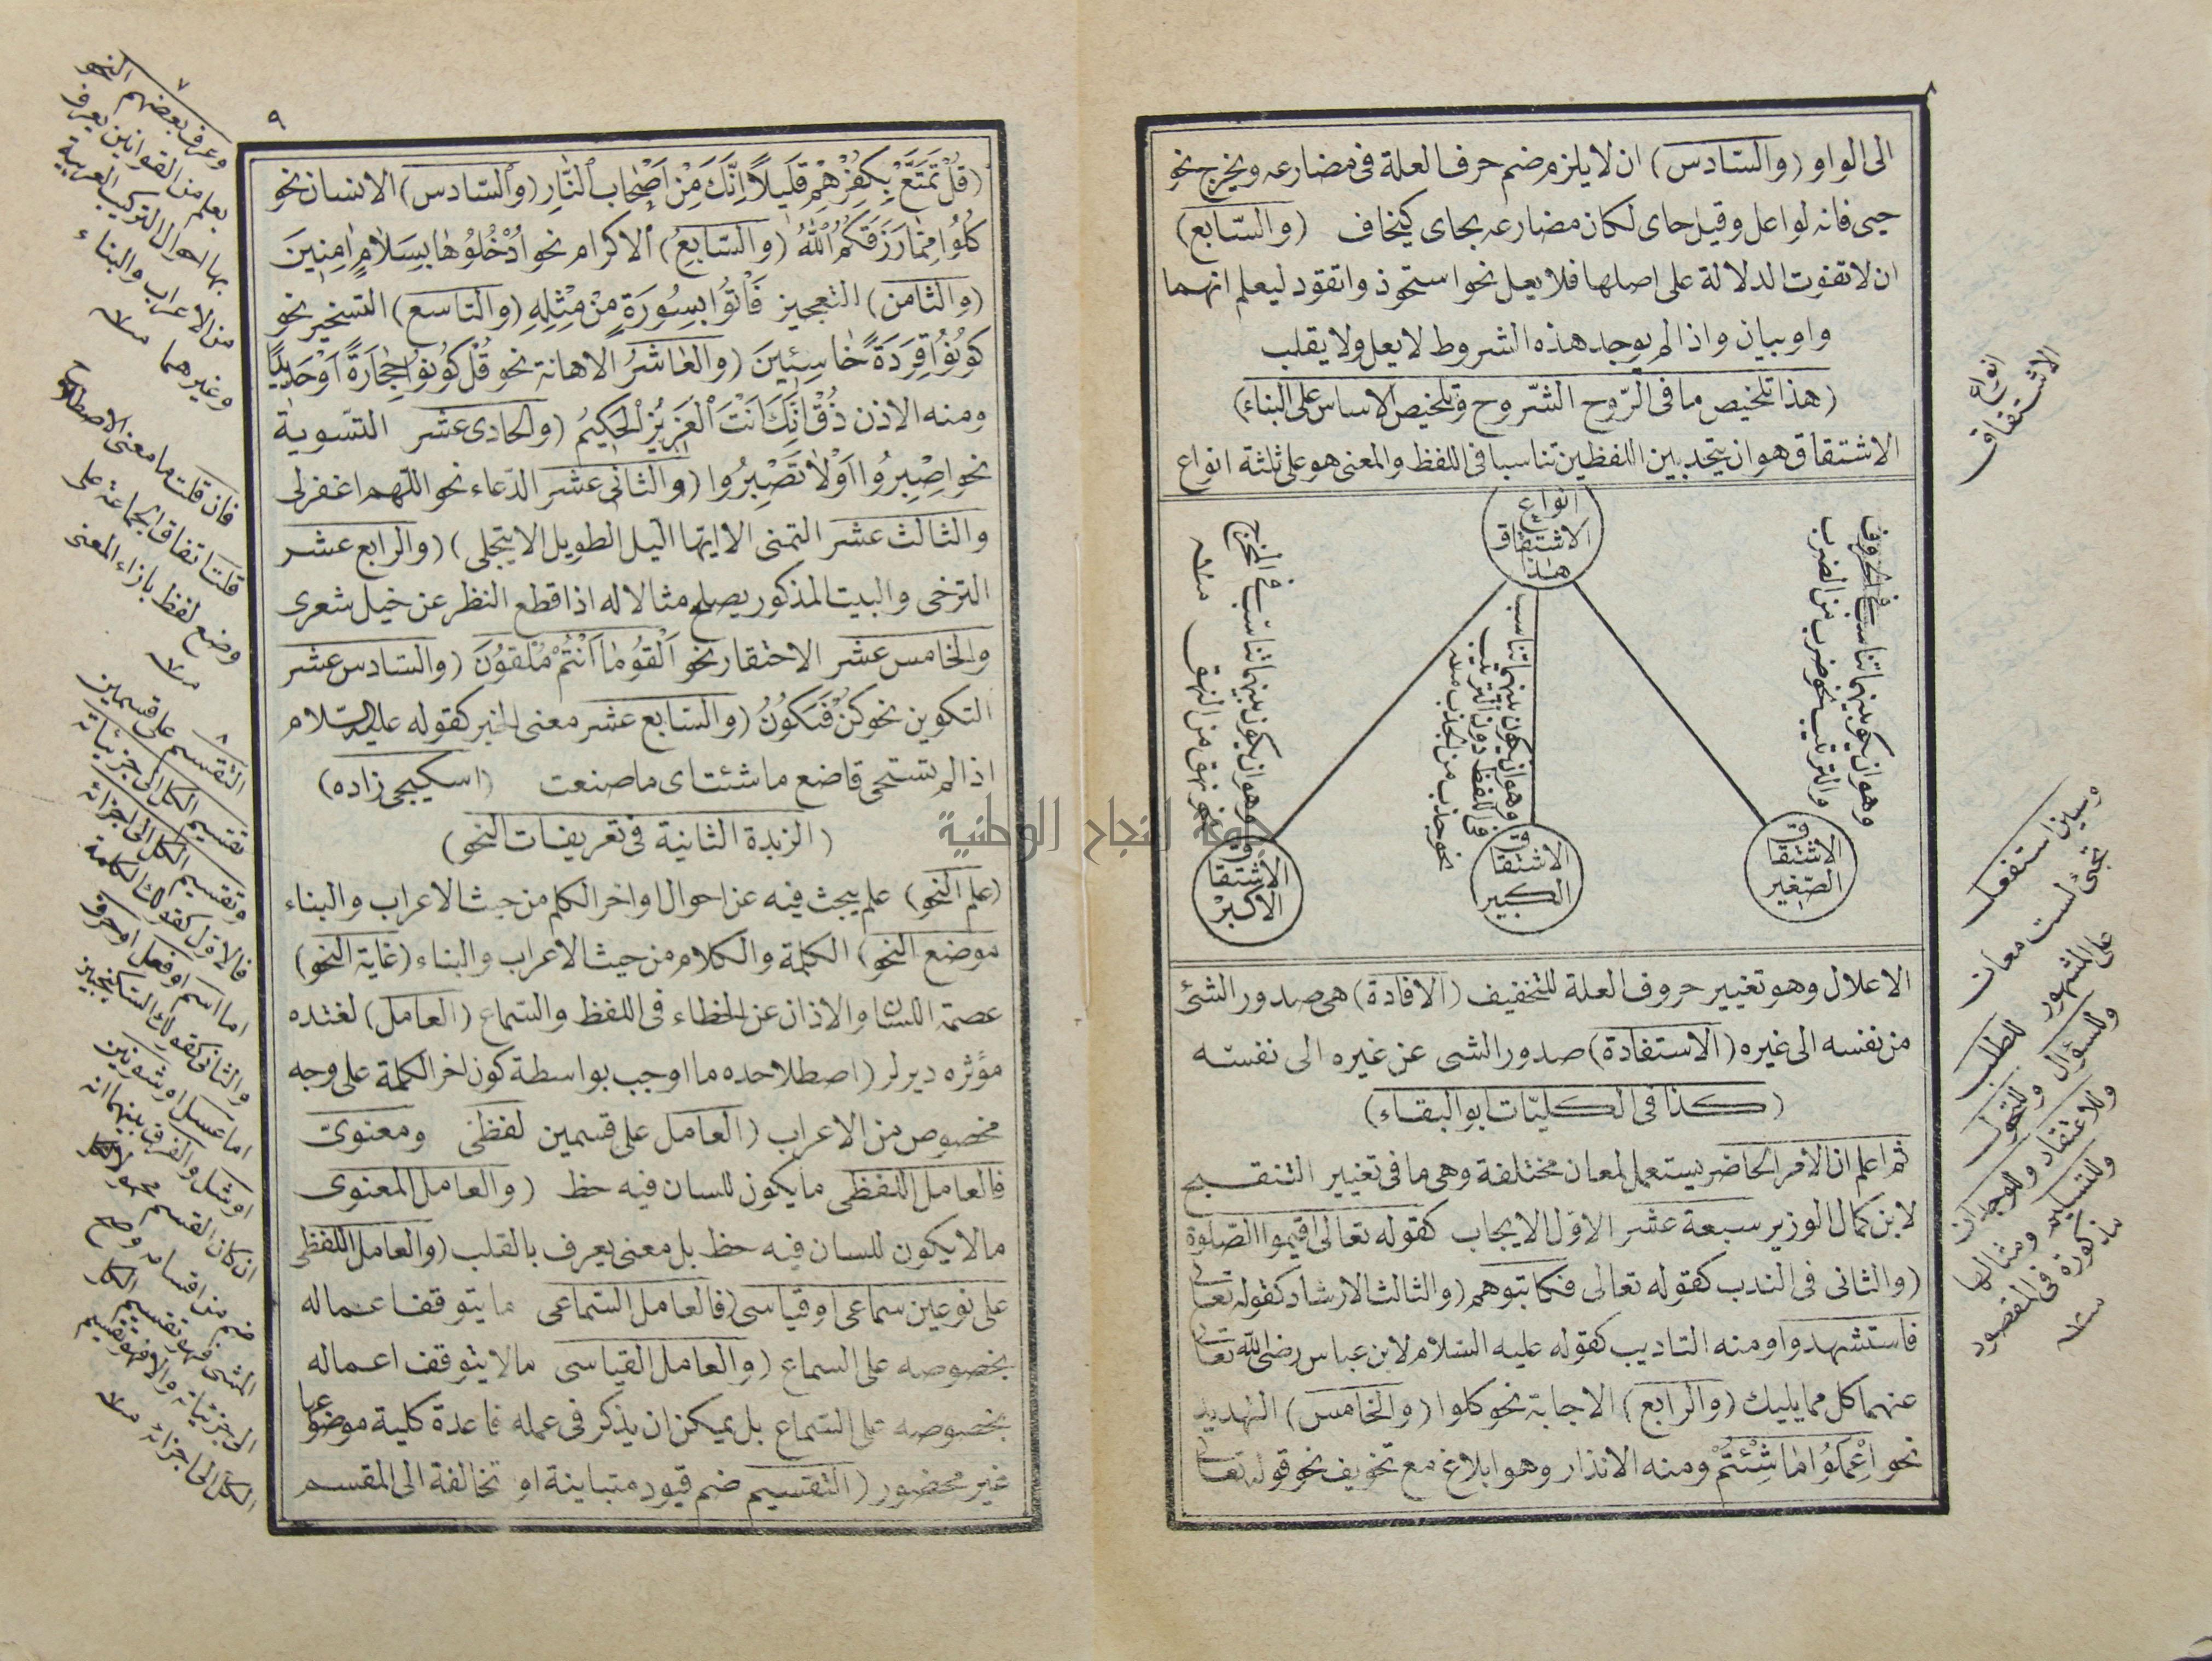 ٨
الى الواو (والسّادس) ان لا يلزم ضم حرف العلة فى مضارعه ويخرج نحو
حيى فانه لو اعل وقيل حاى لكان مضارعه يحاى كيخاف (والسّابع)
ان لا تفوت الدلالة على اصلها فلا يعل نحو استحوذ واتقود ليعلم انهما
واو وبيان واذا لم يوجد هذه الشروط لا يعل ولا يقلب
(هذا تلخيص ما فى الرّوح الشّروح وتلخيص الاساس على البناء)
الاشتقاق هو ان تجد بين اللفظين تناسبا فى اللفظ والمعنى هو على ثلثة انواع
انواع
الاشتقاق
هذا
وهو ان يكون بينهما تناسب فى الحروف
والترتيب نحو ضرب من الضرب
وهو ان يكون بينهما تناسب
فى اللفظ دون الترتيب
نحو جذب من الجذب منه
وهو ان يكون بينهما تناسب فى المخرج
نحو نهق من النهق منه
الاشتقاق
الصّغير
الاشتقاق
الكبير
الاشتقاق
الاكبر
الاعلال وهو تغيير حروف العلة للتخفيف (الافادة) هى صدور الشئ
من نفسه الى غيره (الاستفادة) صدور الشى عن غيره الى نفسه
(كذا فى الكليّات ابو البقاء)
ثم اعلم ان الامر الحاضر يستعمل لمعان مختلفة وهى ما فى تغيير التنقيح
لابن كمال الوزير سبعة عشر الاوّل الايجاب كقوله تعالى اقيموا الصّلوة
(والثانى فى الندب كقوله تعالى فكاتبوهم (والثالث الارشاد كقوله تعالى
فاستشهدوا ومنه التاديب كقوله عليه السّلام لابن عباس رضى الله تعالى
عنهما كل مما يليك (والرابع) الاجابة نحو كلوا (والخامس) التهديد
نحو اِعْمَلُوا مَا شِئْتُمْ ومنه الانذار وهو ابلاغ مع تخويف نحو قوله تعالى
انواع
الاشتقاق
وسين استفعل
تجئ لست معان
على المشهور
للطلب
وللسؤال وللتحول
وللاعتقاد وللوجدان
وللتسليم ومثالها
مذكورة فى المقصود
منه
٩
(قُلْ تَمَتَّعْ بِكُفْرِهِمْ قَلِيلاً اِنَّكَ مِنْ اَصْحَابِ النَّارِ (والسّادس) الانسان نحو
كُلُوا مِمَّا رَزَقَكُمُ اللّٰهُ (والسّابع) الاكرام نحو اُدْخُلُوهَا بِسَلَامٍ اٰمِنِينَ
(والثامن) التعجيز فَاْتُوا بِسُورَةٍ مِنْ مِثْلِهِ (والتاسع) التسخير نحو
كُونُوا قِرَدَةً خَاسِئِينَ (والعاشر الاهانة نحو قُلْ كُونُوا حِجَارَةً اَوْ حَدِيدًا
ومنه الاذن ذُقْ اِنَّكَ اَنْتَ الْعَزِيزُ الْحَكِيمُ (والحادى عشر التسوية
نحو اِصْبِرُوا اَوْ لَا تَصْبِرُوا (والثانى عشر الدّعاء نحو اللّهم اغفر لى
والثالث عشر التمنى الا ايّها اليل الطويل الا ينجلى) (والرابع عشر
الترخى والبيت المذكور يصلح مثالا له اذا قطع النظر عن خيل شعرى
والخامس عشر الاحتقار نحو اَلْقُوا مَا اَنْتُمْ مُلْقُونَ (والسّادس عشر
التكوين نحو كُنْ فَيَكُونُ (والسّابع عشر معنى الخبر كقوله عليه السّلام
اذا لم تستحى فاضع ما شئت اى ما صنعت (اسكيجى زاده)
(الزبدة الثانية فى تعريفات النحو)
(علم النحو) علم يبحث فيه عن احوال اواخر الكلم من حيث الاعراب والبناء
موضع النحو) الكلمة والكلام من حيث الاعراب والبناء (غاية النحو)
عصمة اللسان والاذان عن الخطاء فى اللفظ والسّماع (العامل) لغتده
مؤثره ديرلر (اصطلاحده ما اوجب بواسطة كون اخر الكلمة على وجه
مخصوص من الاعراب (العامل على قسمين لفظى ومعنوى
فالعامل اللفظى ما يكون للسان فيه حظ (والعامل المعنوى
ما لا يكون للسان فيه حظ بل معنى يعرف بالقلب (والعامل اللفظى
على نوعين سماعى او قياسى (فالعامل السّماعى ما يتوقف اعماله
بخصوصه على السماع (والعامل القياسى ما لا يتوقف اعماله
بخصوصه على السّماع بل يمكن ان يذكر فى عمله قاعدة كلية موضوعها
غير محضور (التقسيم ضم قيود متباينة او تخالفة الى المقسم
٧
وعرف بعضهم النحو
بعلم من القوانين يعرف
بها احوال التركيب العربية
من الاعراب والبناء
وغيرهما منه
فان قلت ما معنى الاصطلاح
قلنا اتفاق الجماعة على
وضع لفظ بازاء المعنى
منه
٨
التقسيم على قسمين
تقسيم الكل الى جزئياته
وتقسيم الكل الى اجزائه
فالاول كقولك الكلمة
اما اسم او فعل او حرف
والثانى كقولك السكنجبين
اما عسل او
والفرق بينهما انه
ان كان القسم
ضم من اقسامه وصح
المثنى فهو تقسيم الكل
الى جزئياته والا فهو تقسيم
الكل الى اجزائه منه
جامعة النجاح الوطنية